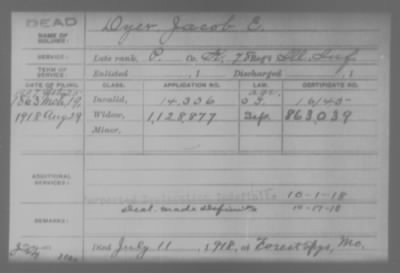 DEAD
NAME OF SOLDIER: Dyer Jacob E.
SERVICE: Late rank, P. Co. 78 Reg't Ill. Inf.
TERM OF SERVICE: Enlisted , 1 Discharged , 1
DATE OF FILING. CLASS. APPLICATION NO. LAW. CERTIFICATE NO.
1863 Mch 19, Invalid, 14,336 16145
1918 Aug 29 Widow, 1,128,877 863,039
Minor,
ADDITIONAL SERVICES:
10-1-18
made
REMARKS: 10-17-18
Died July 11, 1918, at Forest Spgs, Mo.